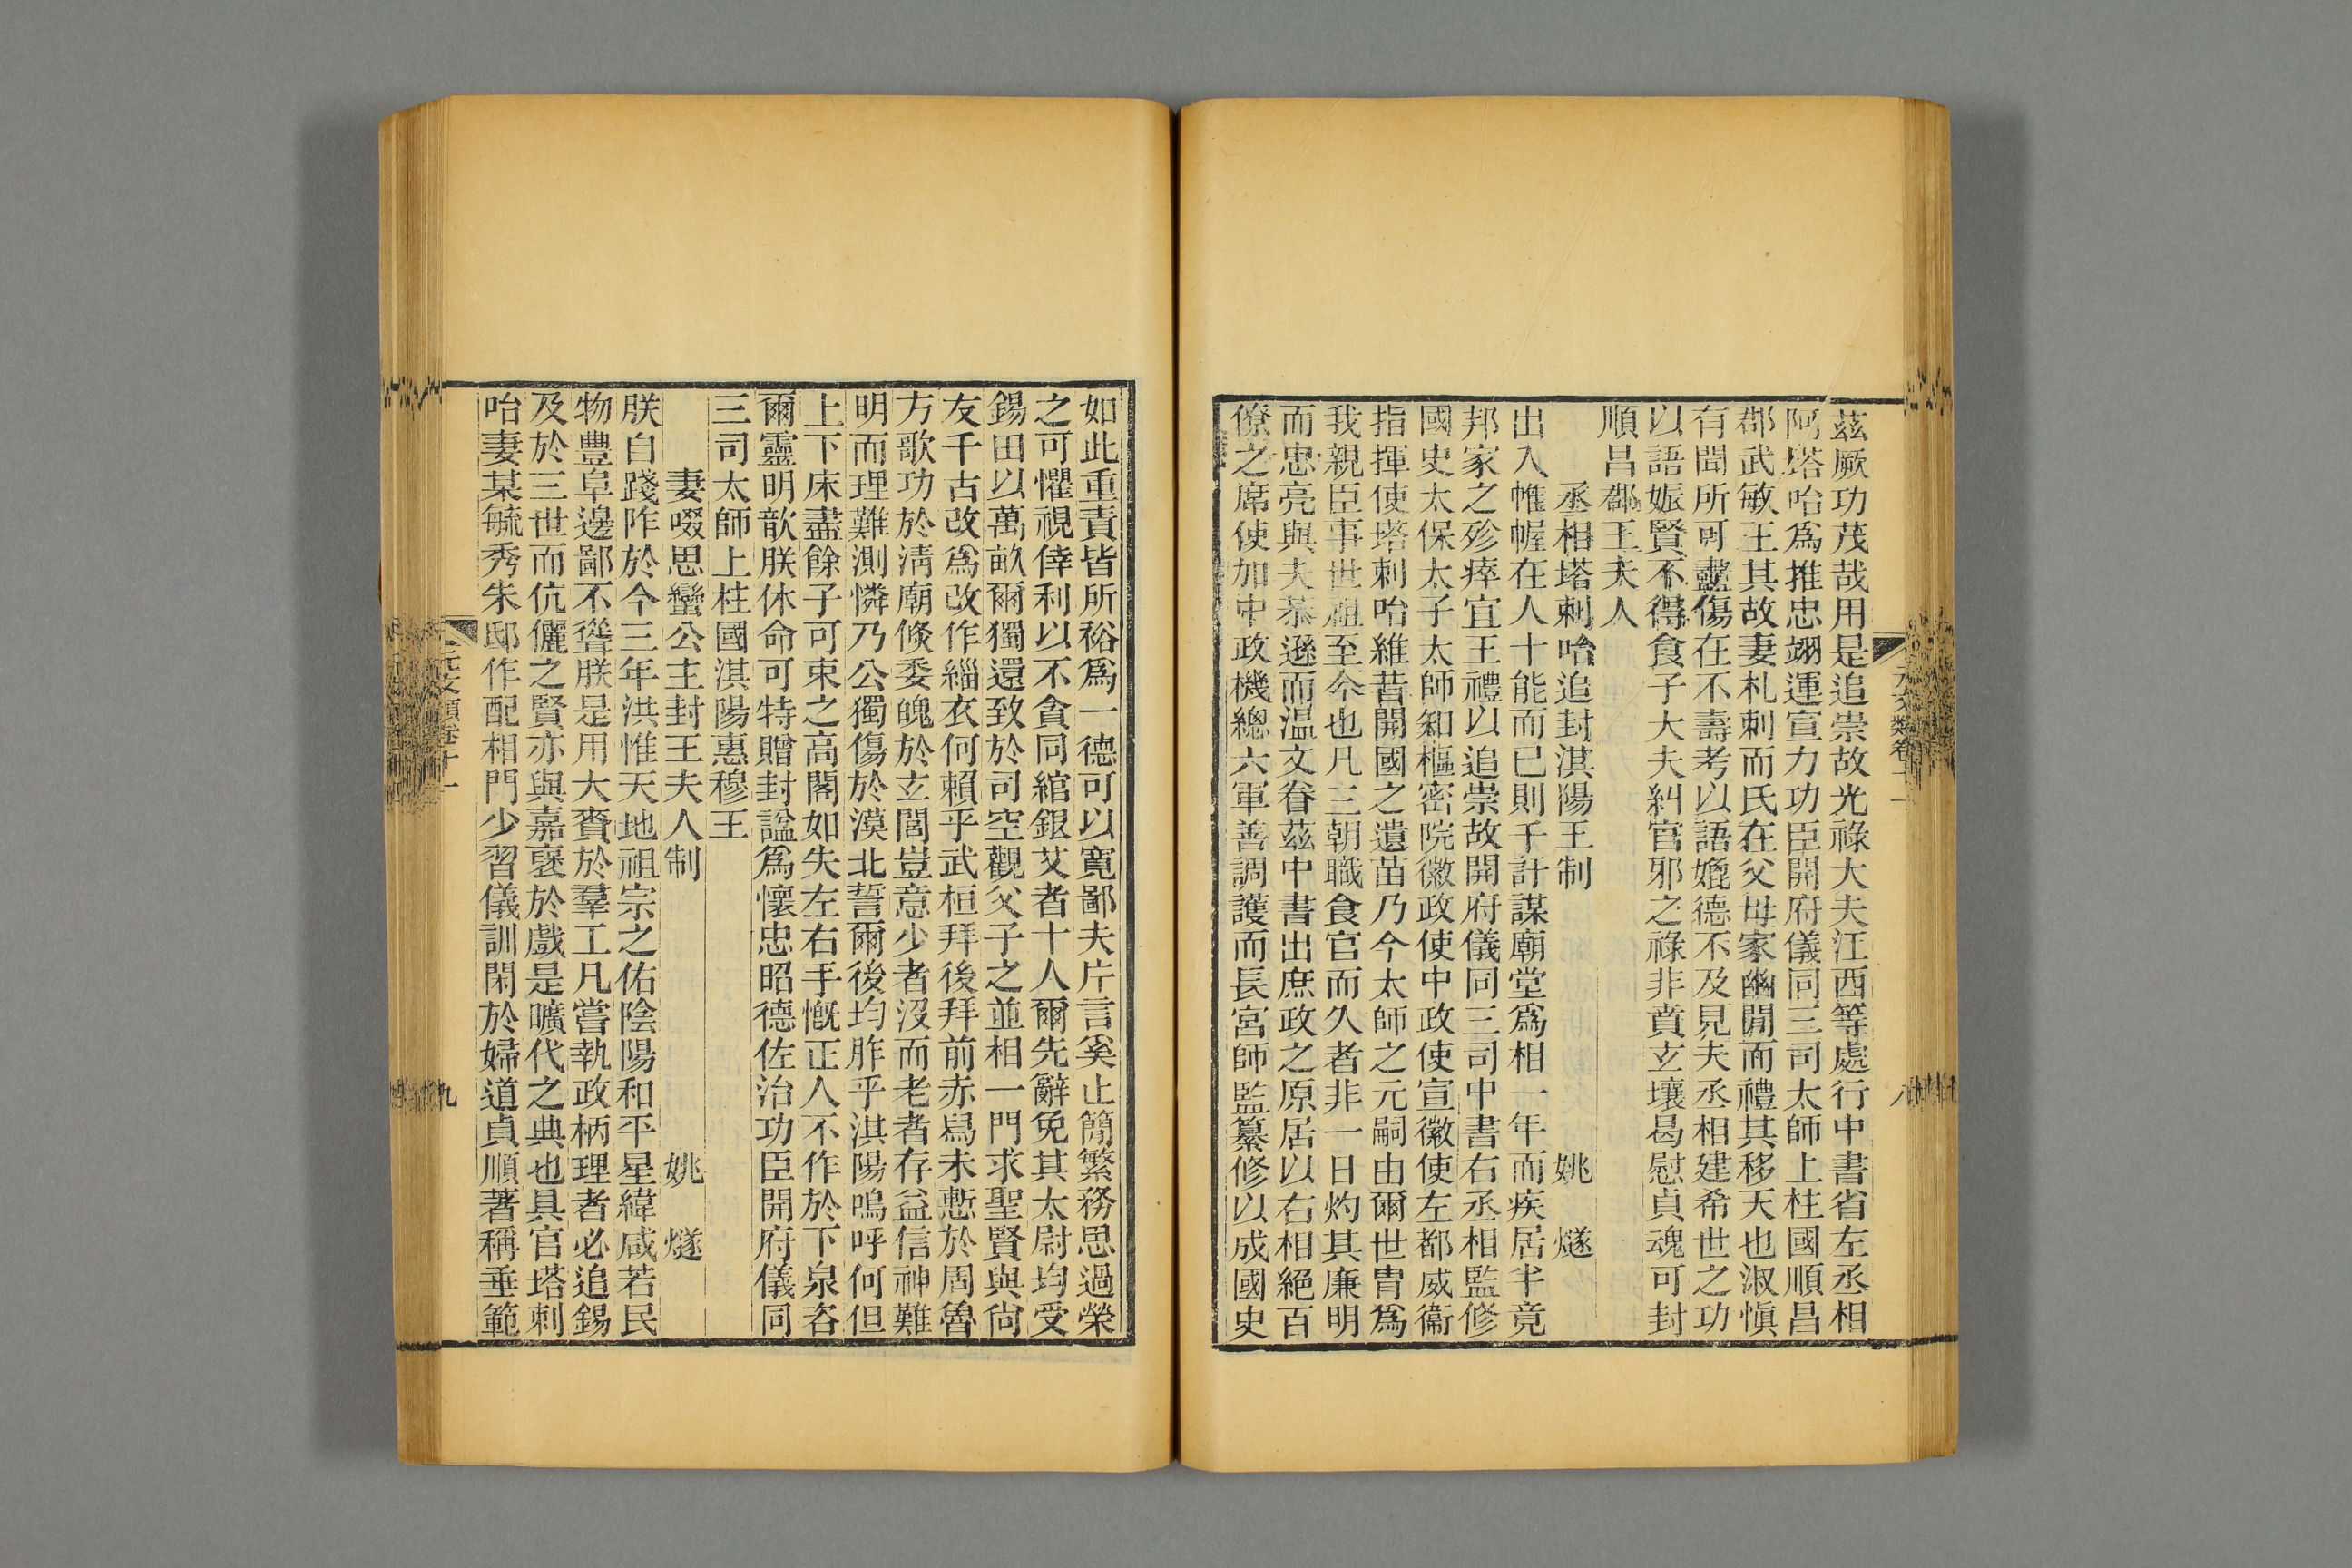 茲厥功茂哉用是追崇故光祿大夫江西等處行中書省左丞相
阿塔哈爲推忠翊運宣力功臣開府儀同三司太師上柱國順昌
郡武敏王其故妻札剌而氏在父母家幽閒而禮其移天也淑慎
有聞所可盡傷在不壽考以語媲德不及見夫丞相建希世之功
以語娠賢不得食子大夫糾官邪之祿非賁玄壤曷慰貞魂可封
順昌郡王夫人
丞相塔剌哈追封淇陽王制 姚 燧
出入帷幄在人十能而已則千訏謀廟堂爲相一年而疾居半竟
邦家之殄瘁宜王禮以追崇故開府儀同三司中書右丞相監修
國史太保太子太師知樞密院徽政使中政使宣徽使左都威衞
指揮使塔剌哈維昔開國之遺苗乃今太師之元嗣由爾世胄爲
我親臣事世祖至今也凡三朝職食官而久者非一日灼其廉明
而忠亮與夫恭遜而温文眷茲中書出庶政之原居以右相絕百
僚之席使加中政機總六軍善調護而長宮師監纂修以成國史
元文類卷十一
八
如此重責皆所裕爲一德可以寬鄙夫片言奚止簡繁務思過榮
之可懼視倖利以不貪同綰銀艾者十人爾先辭免其太尉均受
錫田以萬畝爾獨還致於司空觀父子之並相一門求聖賢與尙
友千古改爲改作緇衣何賴乎武桓拜後拜前赤舄未慙於周魯
方歌功於淸廟倐委魄於玄閭豈意少者沒而老者存益信神難
明而理難測憐乃公獨傷於漠北誓爾後均胙乎淇陽嗚呼何但
上下床盡餘子可束之高閣如失左右手慨正人不作於下泉咨
爾靈明歆朕休命可特贈封諡爲懷忠昭德佐治功臣開府儀同
三司太師上柱國淇陽惠穆王
妻啜思蠻公主封王夫人制 姚 燧
朕自踐阼於今三年洪惟天地祖宗之佑陰陽和平星緯咸若民
物豐阜邊鄙不聳朕是用大賚於羣工凡嘗執政柄理者必追錫
及於三世而伉儷之賢亦與嘉襃於戲是曠代之典也具官塔剌
哈妻某毓秀朱邸作配相門少習儀訓閑於婦道貞順著稱垂範
元文類卷十一
九